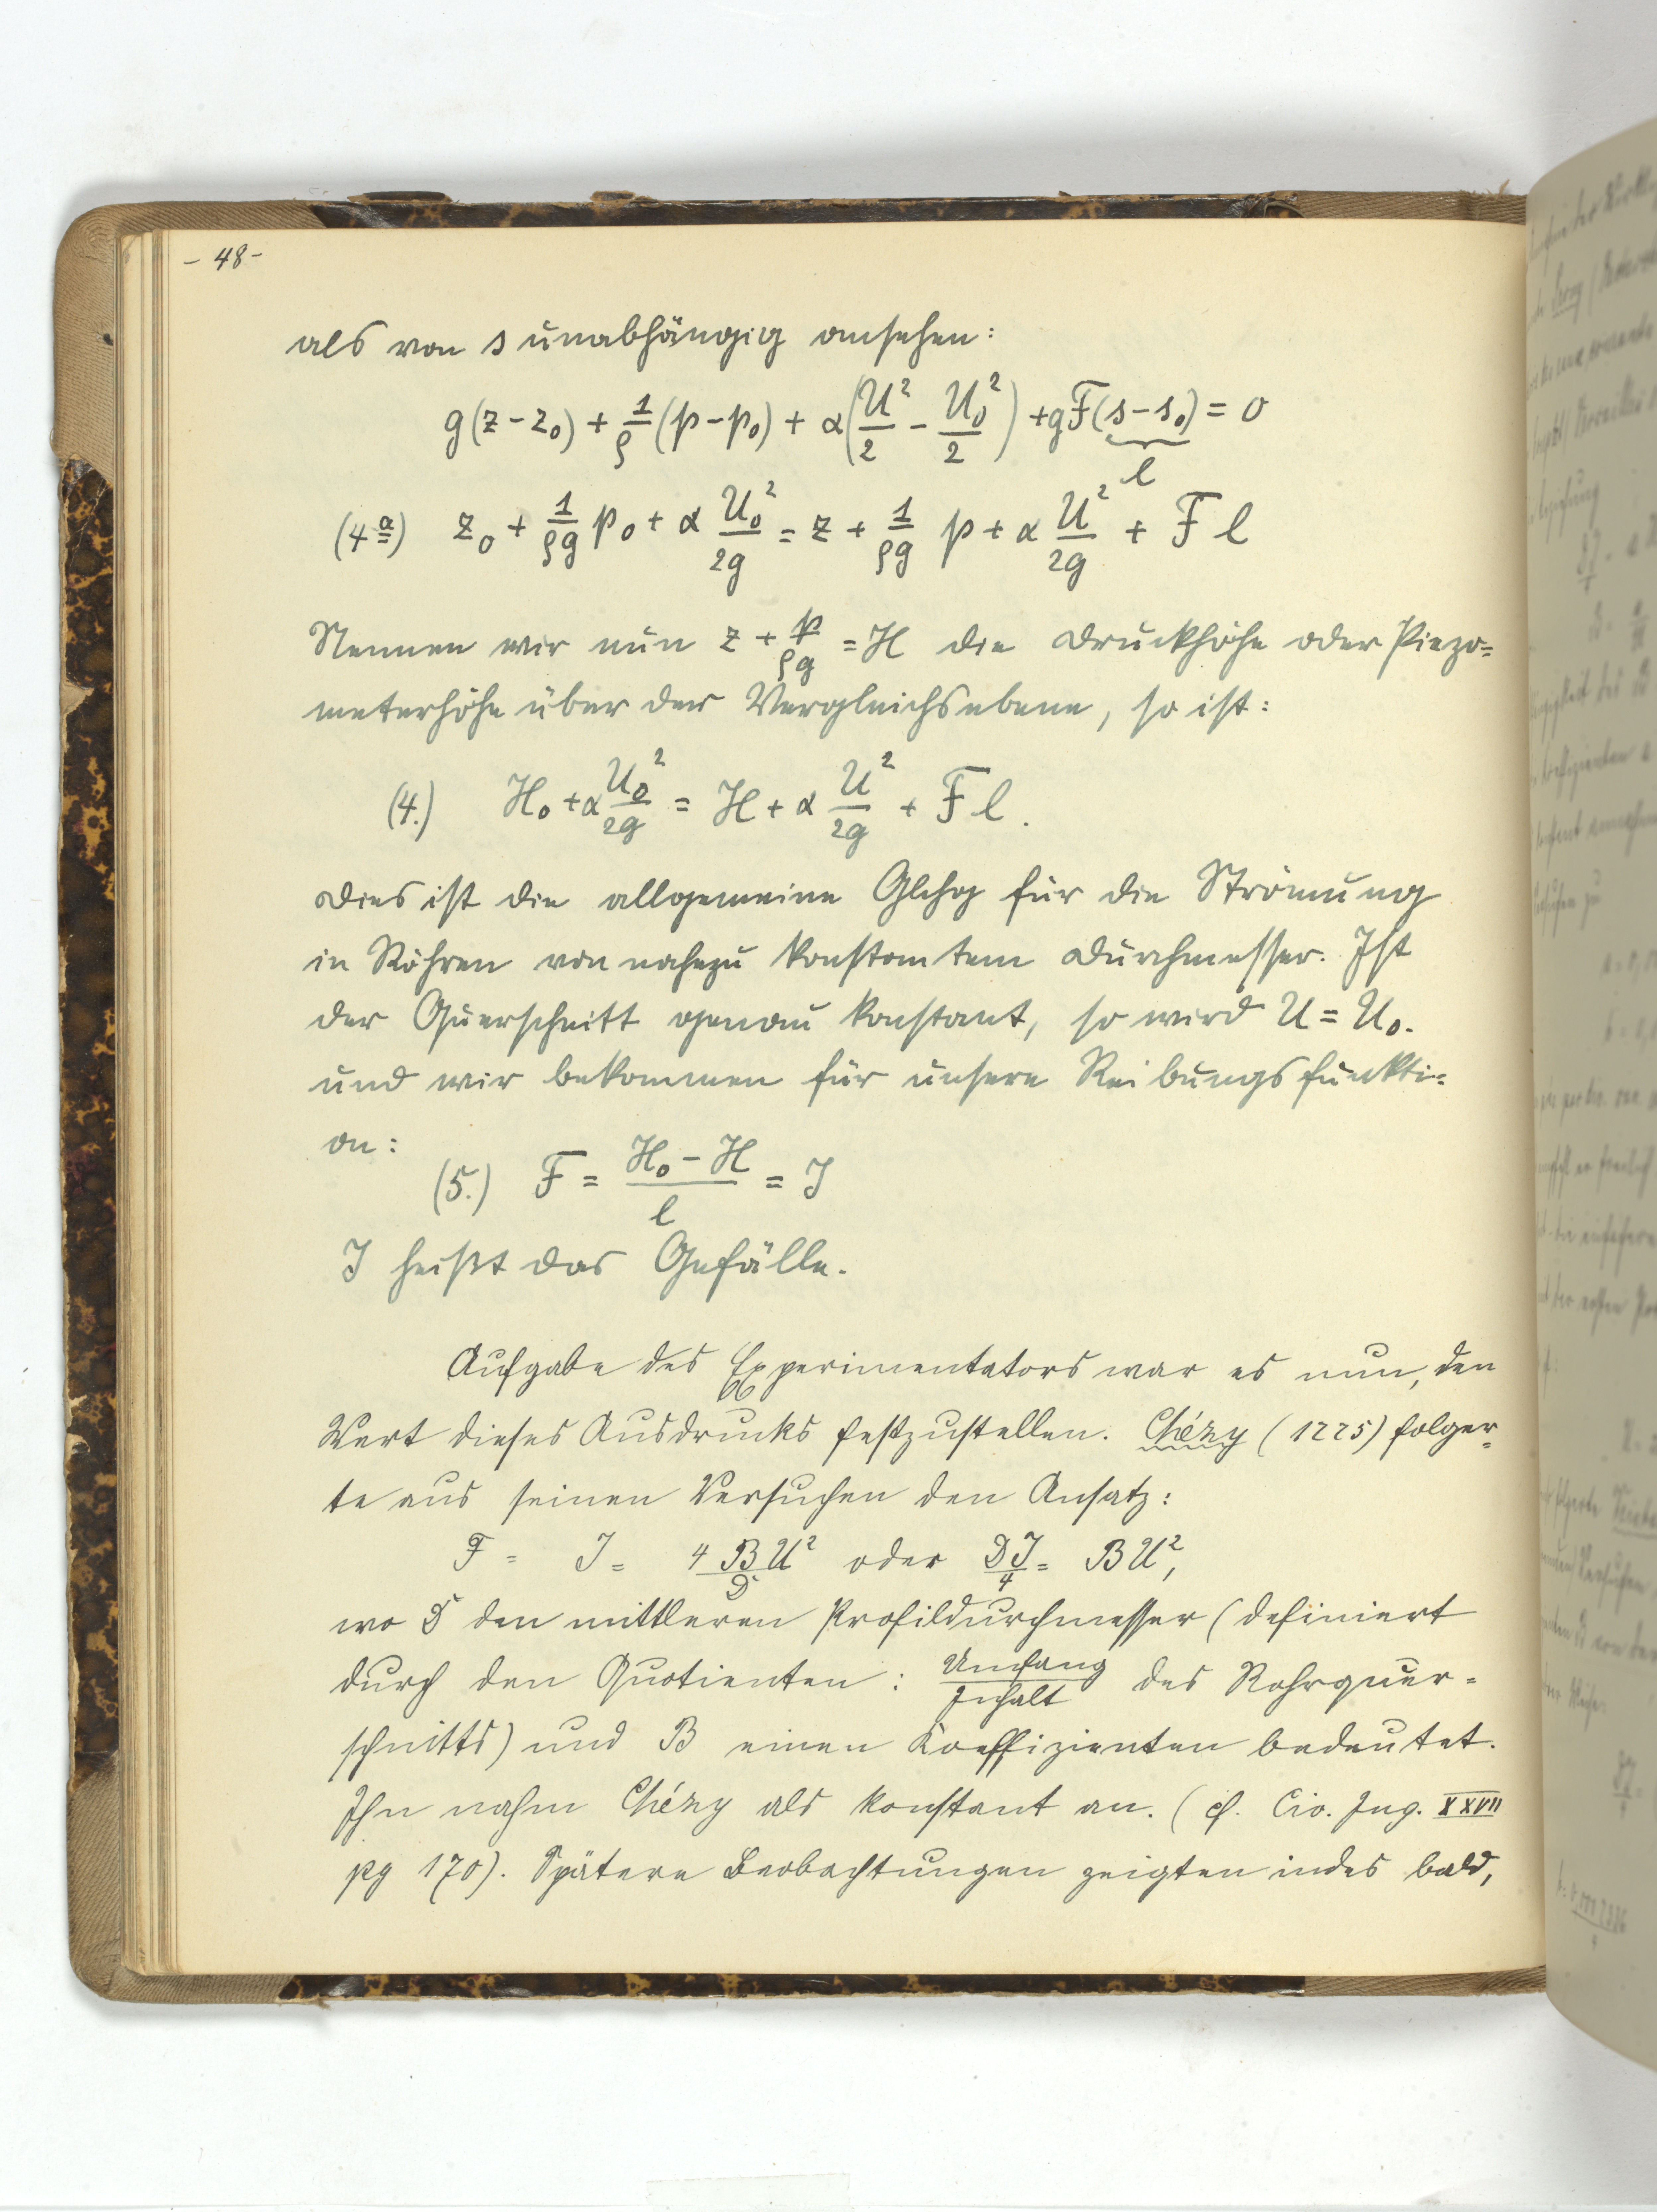 - 48 -
als von s unabhängig ansehen:
g(z - z₀) + 1/ρ (p - p₀) + α(U²/2 - U₀²/2) + gF(s - s₀) = 0
l
(4a) z₀ + 1/ρg p₀ + α U₀²/2g = z + 1/ρg p + α U²/2g + F l
Nennen wir nun z + p/ρg = H die Druckhöhe oder Piezo=
meterhöhe über der Vergleichsebene, so ist:
(4.) H₀ + α U₀²/2g = H + α U²/2g + F l.
Dies ist die allgemeine Glchg für die Strömung
in Röhren von nahezu konstantem Durchmesser. Ist
der Querschnitt genau konstant, so wird U = U₀.
und wir bekommen für unsere Reibungsfunkti=
on:
(5.) F = (H₀ - H)/l = J
J heißt das Gefälle.
Aufgabe des Experimentators war es nun, den
Wert dieses Ausdrucks festzustellen. Chézy (1775) folger=
te aus seinen Versuchen den Ansatz:
F = J = 4BU²/D oder DJ/4 = BU²,
wo D den mittleren Profildurchmesser (definiert
durch den Quotienten: Umfang/Inhalt des Rohrquer=
schnitts) und B einen Koeffizienten bedeutet.
Ihn nahm Chézy als konstant an. (cf. Civ. Ing. XXVII
pg 170). Spätere Beobachtungen zeigten indes bald,